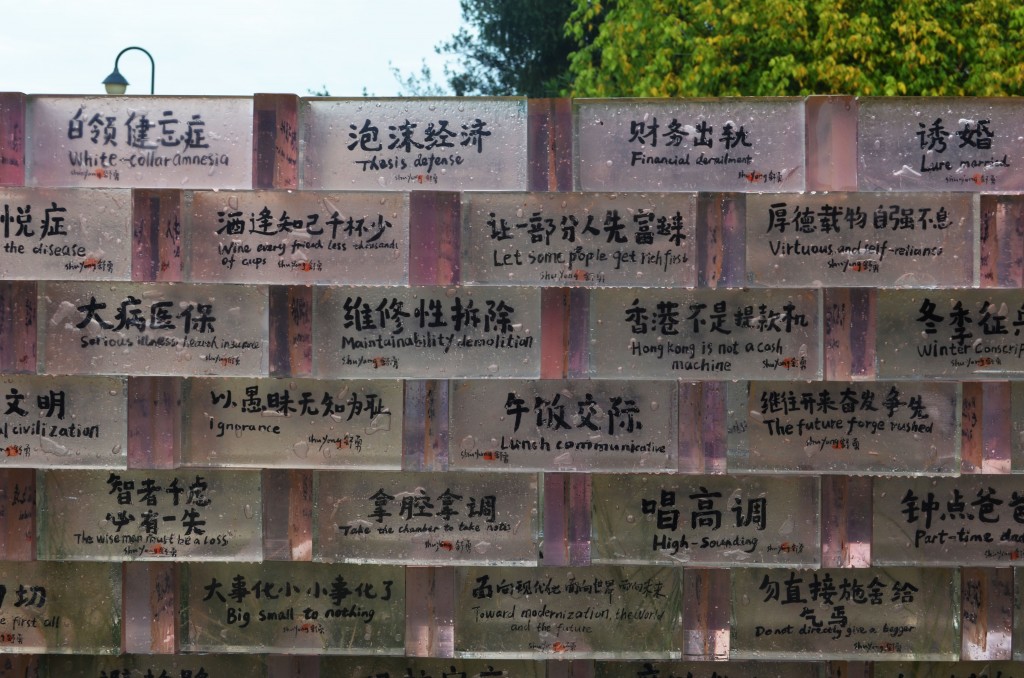 白领健忘症
White-collar amnesia
shuyong 舒勇
泡沫经济
Thesis defense
shuyong 舒勇
财务出轨
Financial derailment
shuyong 舒勇
诱婚
Lure married
shuyong 舒勇
悦症
the disease
shuyong 舒勇
酒逢知己千杯少
Wine every friend less thousands
of cups
shuyong 舒勇
让一部分人先富起来
Let some people get rich first
shuyong 舒勇
厚德载物自强不息
Virtuous and self-reliance
shuyong 舒勇
大病医保
Serious illness health insurance
shuyong 舒勇
维修性拆除
Maintainability demolition
shuyong 舒勇
香港不是提款机
Hong kong is not a cash
machine
shuyong 舒勇
冬季征兵
Winter conscrip
文明
al civilization
shuyong 舒勇
以愚昧无知为耻
ignorance
shuyong 舒勇
午饭交际
Lunch communicative
shuyong 舒勇
继往开来奋发争先
The future forge rushed
shuyong 舒勇
智者千虑
必有一失
The wise man must be a loss
shuyong 舒勇
拿腔拿调
Take the chamber to take notes
shuyong 舒勇
唱高调
High-Sounding
shuyong 舒勇
钟点爸爸
Part-time dad
shuyong 舒勇
切
e first all
舒勇
大事化小小事化了
Big small to nothing
shuyong 舒勇
面向现代化面向世界面向未来
Toward modernization, the world
and the future
shuyong 舒勇
勿直接施舍给
乞丐
Do not directly give a beggar
shuyong 舒勇